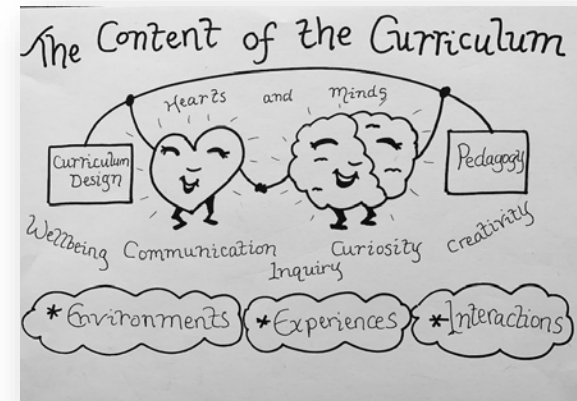 The Content of the Curriculum
Hearts and Minds
Curriculum
Design
Pedagogy
Wellbeing Communication Inquiry Curiosity Creativity
*Environments *Experiences *Interactions